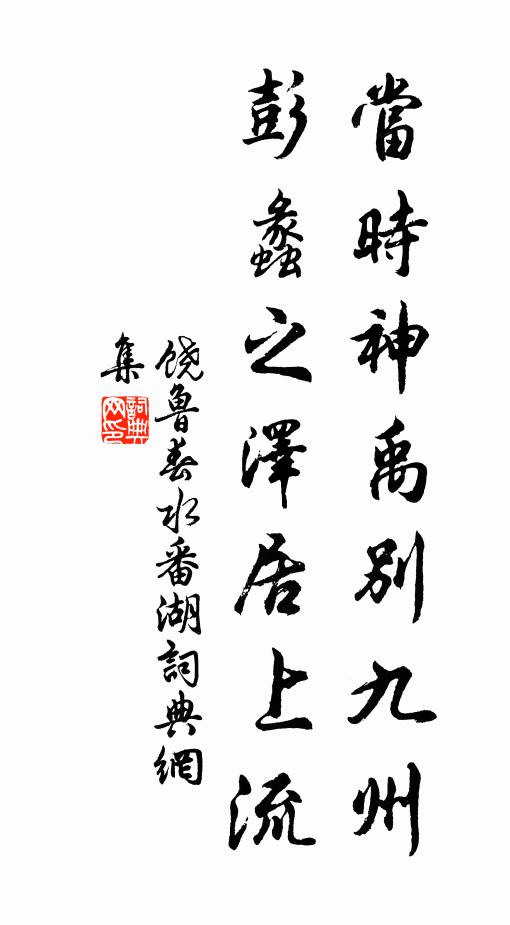 當時神禹別九州
彭蠡之澤居上流
饒魯春水番湖詞典網
集
詞典
网印